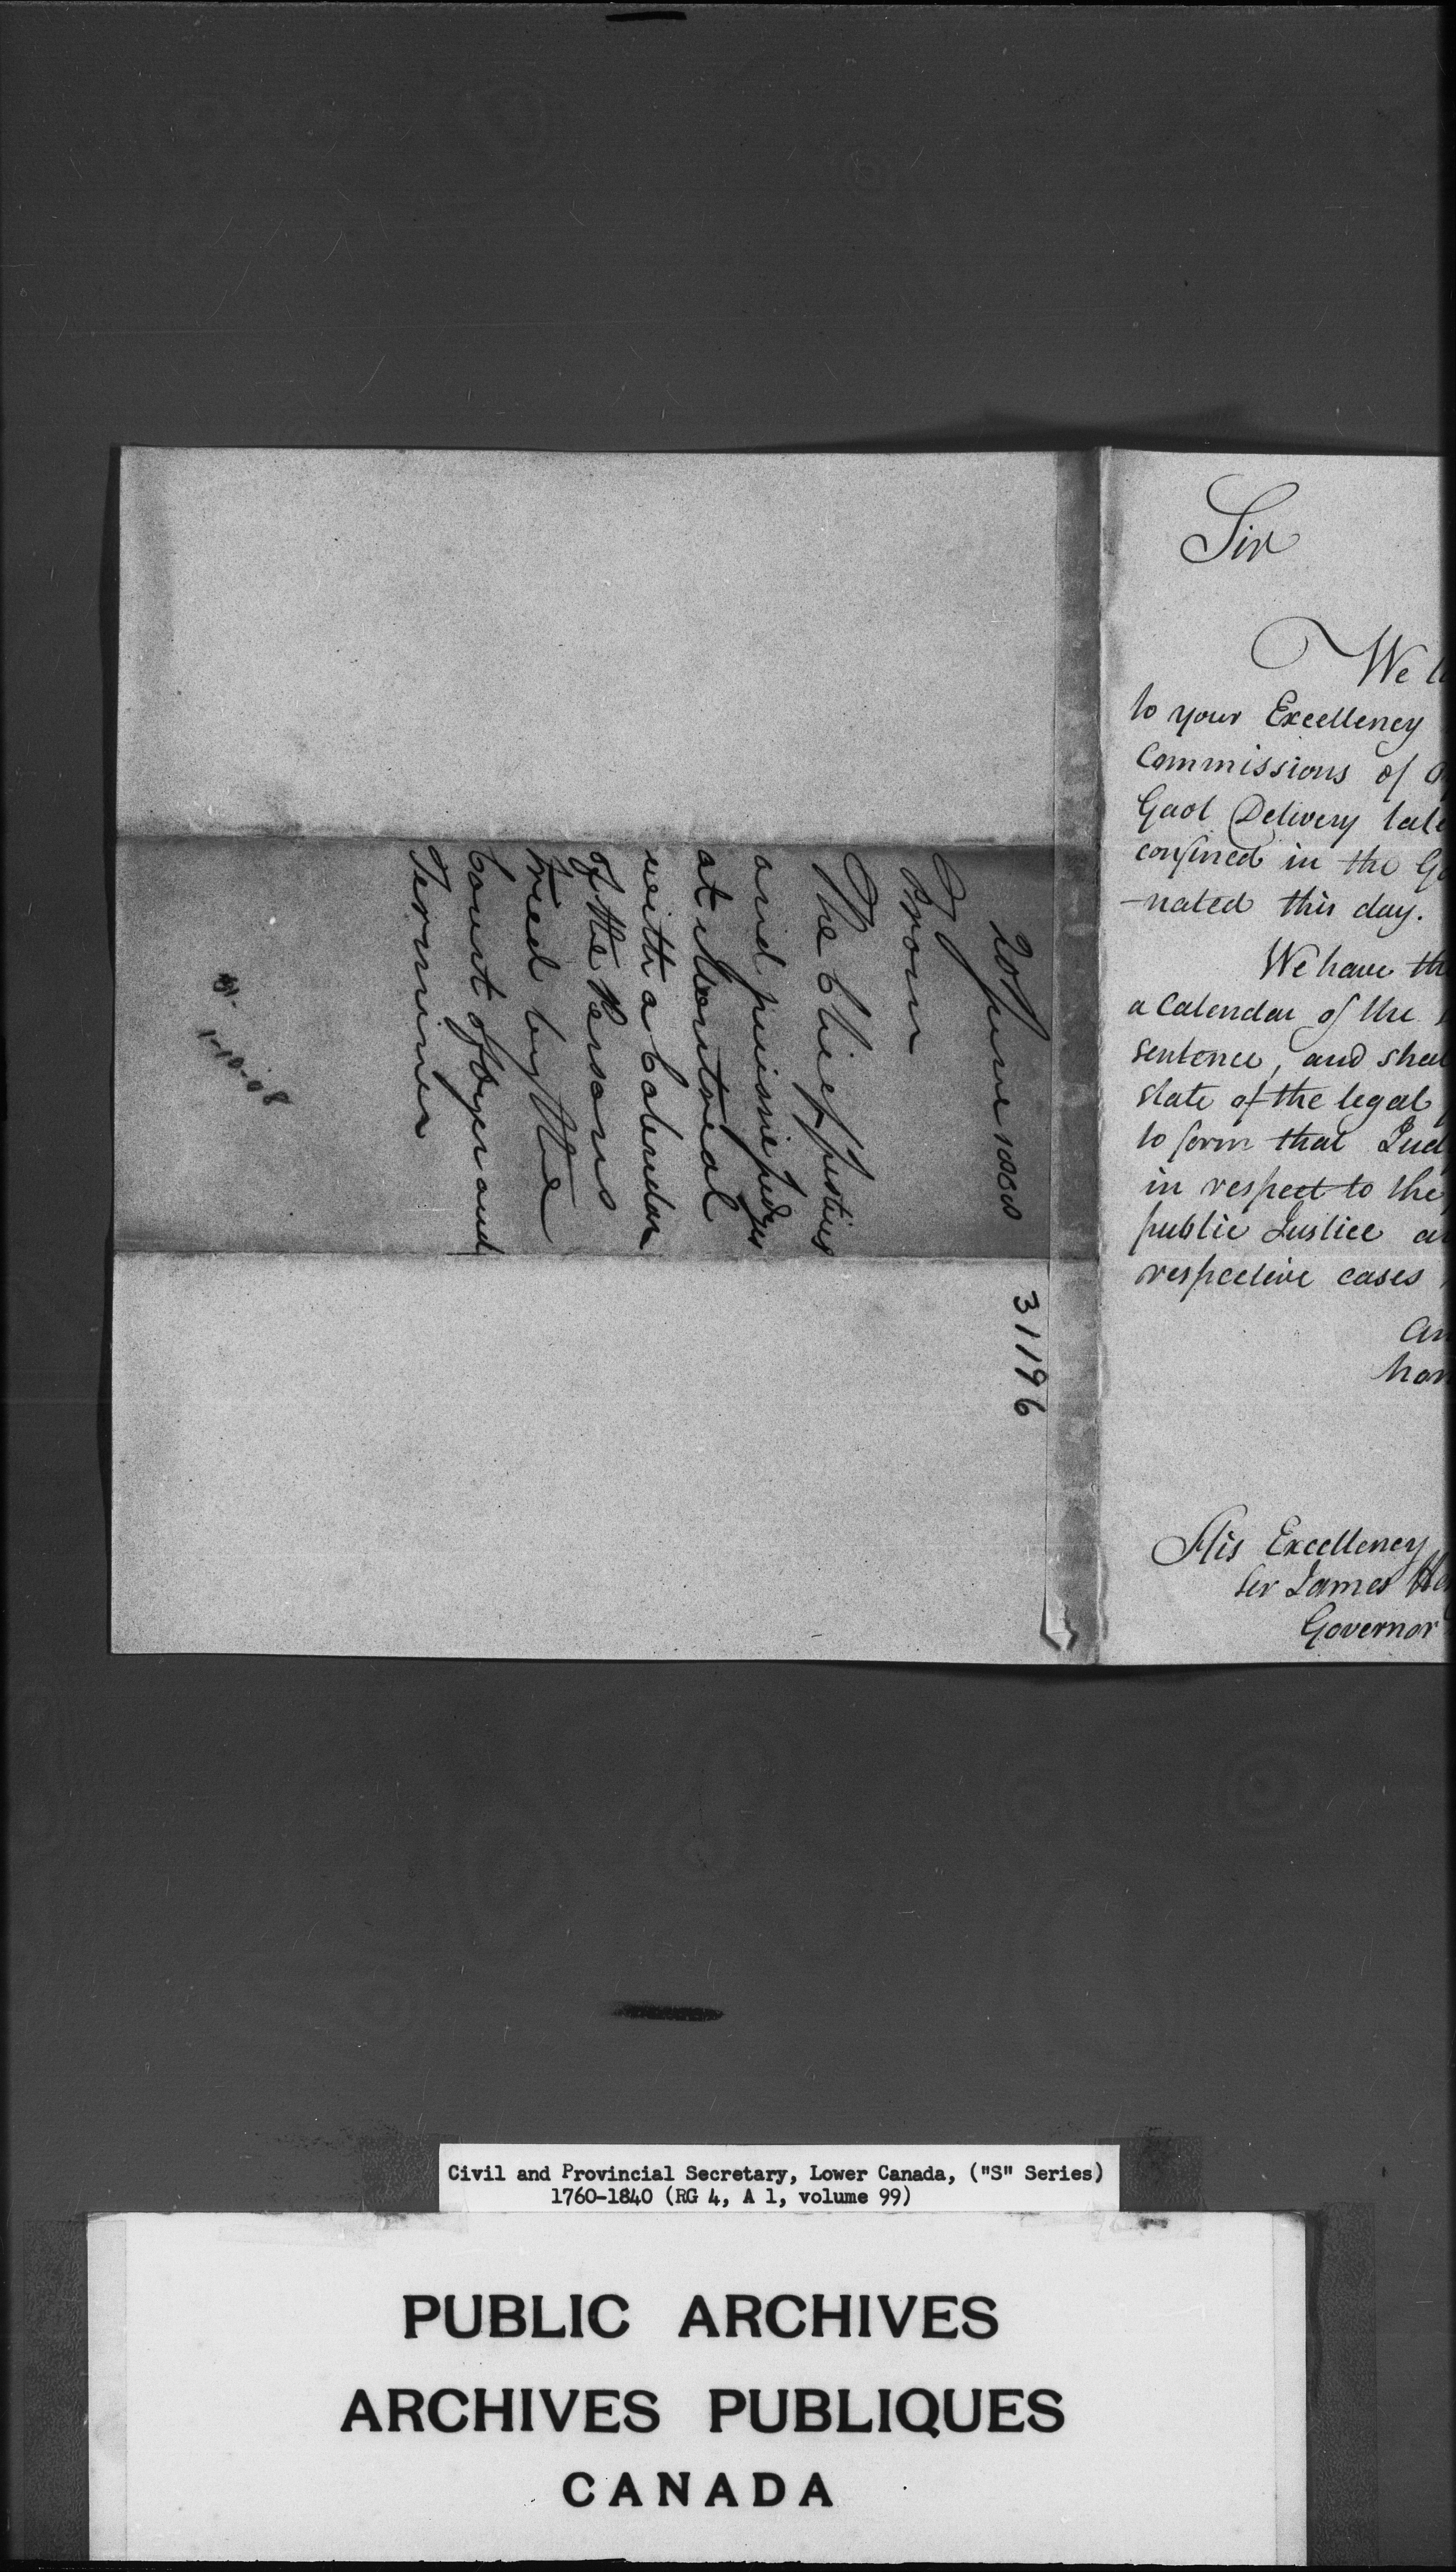 20 June 1808
From
The Chief Justice
and puisnie judges
at Montreal
with a Calendar
of the Persons
tried by the
Court of Oyer and
Terminer
1-10-08
31196
Sir
We
to your Excellency
Commissions of
Gaol Delivery late
confined in the
-nated this day.
We have th
a Calendar of the
sentence, and shew
state of the legal
to form that Jud
in respect to the
public Justice a
respective cases
an
hon
His Excellency
Sir James
Governor
Civil and Provincial Secretary, Lower Canada, ("S" Series)
1760-1840 (RG 4, A 1, volume 99)
PUBLIC ARCHIVES
ARCHIVES PUBLIQUES
CANADA